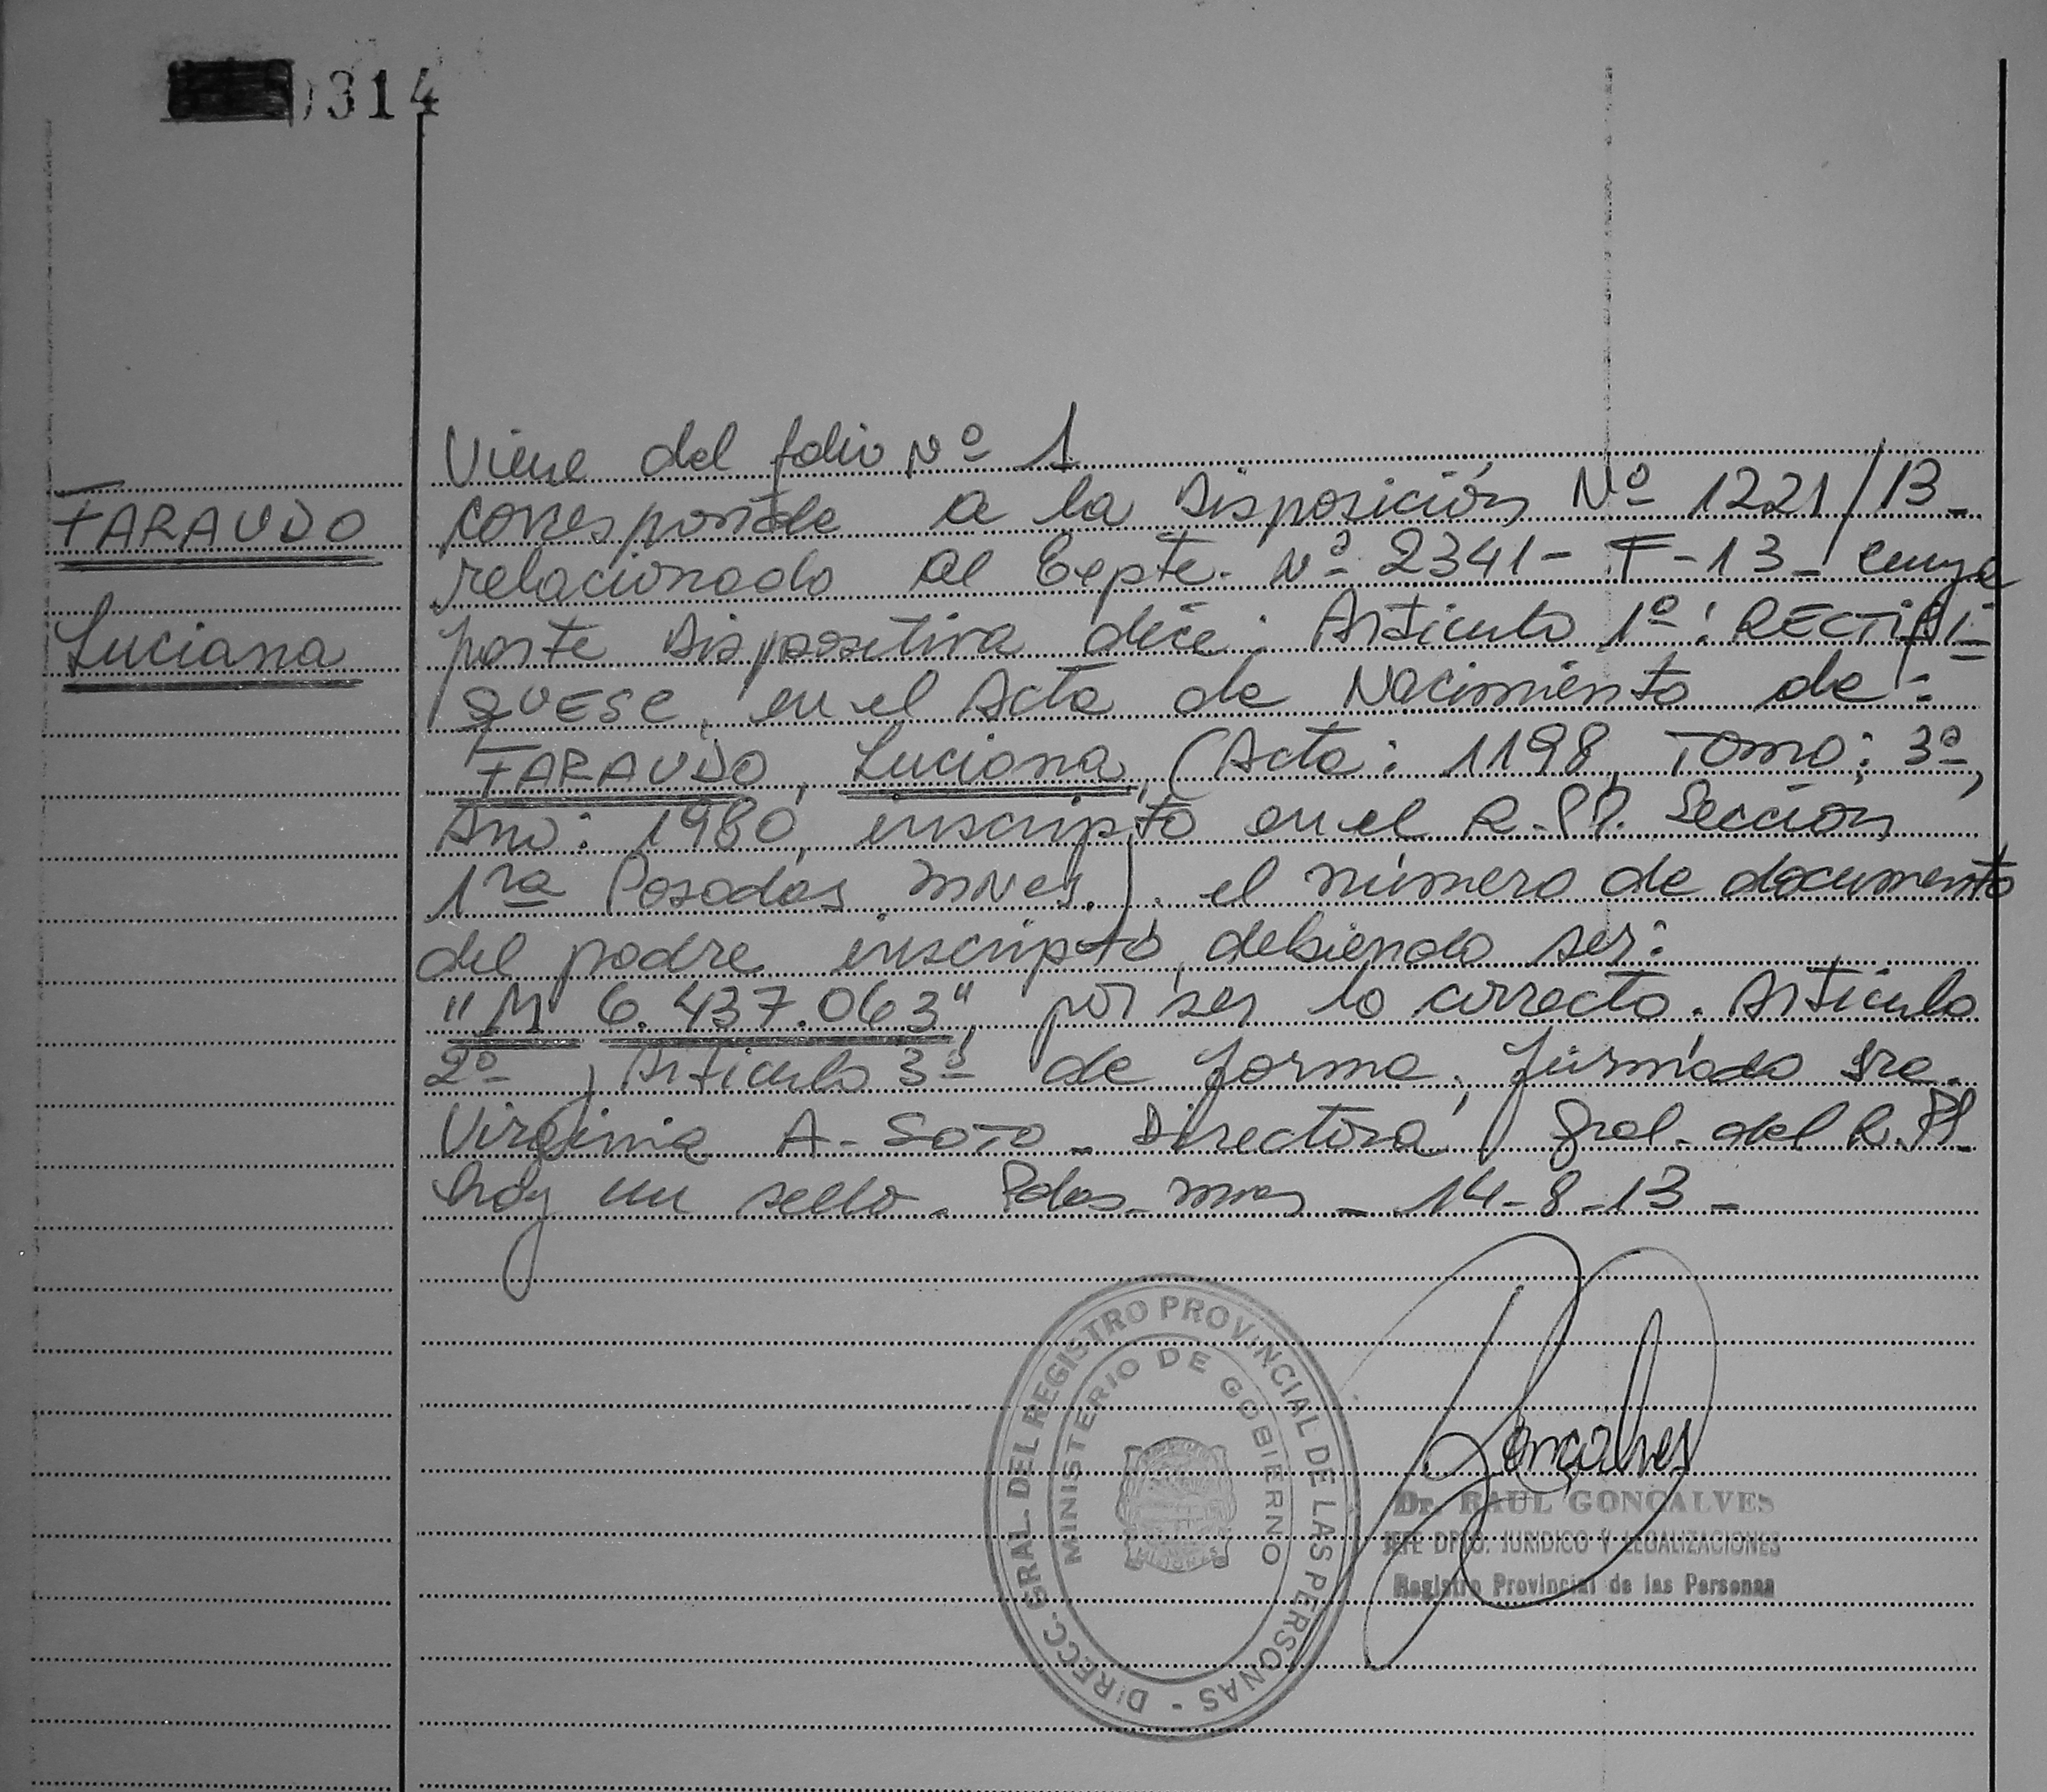 314
Viene del folio Nº 1
FARAUDO
Luciana
corresponde a la Disposición Nº 1221/13-
relacionado al Expte. Nº 2341- F-13- cuya
parte Dispositiva dice: Artículo 1º: RECTIFI-
QUESE, en el Acta de Nacimiento de:
FARAUDO, Luciana, (Acta: 1198, Tomo: 3º,
Año: 1980, inscripto en el R.PP. Sección
1ra Posadas Mnes.). el número de documento
del padre inscripto, debiendo ser:
"M 6.437.063", por ser lo correcto. Artículo
2º y Artículo 3º de forma. firmado Sra.
Virginia A- Soto- Directora Gral. del R.PP.
hay un sello. Pdas. Mnes - 14-8-13-
DIRECC. GRAL. DEL REGISTRO PROVINCIAL DE LAS PERSONAS -
MINISTERIO DE GOBIERNO
MISIONES
Gonçalves
Dr. RAUL GONCALVES
JEFE DPTO. JURIDICO Y LEGALIZACIONES
Registro Provincial de las Personas